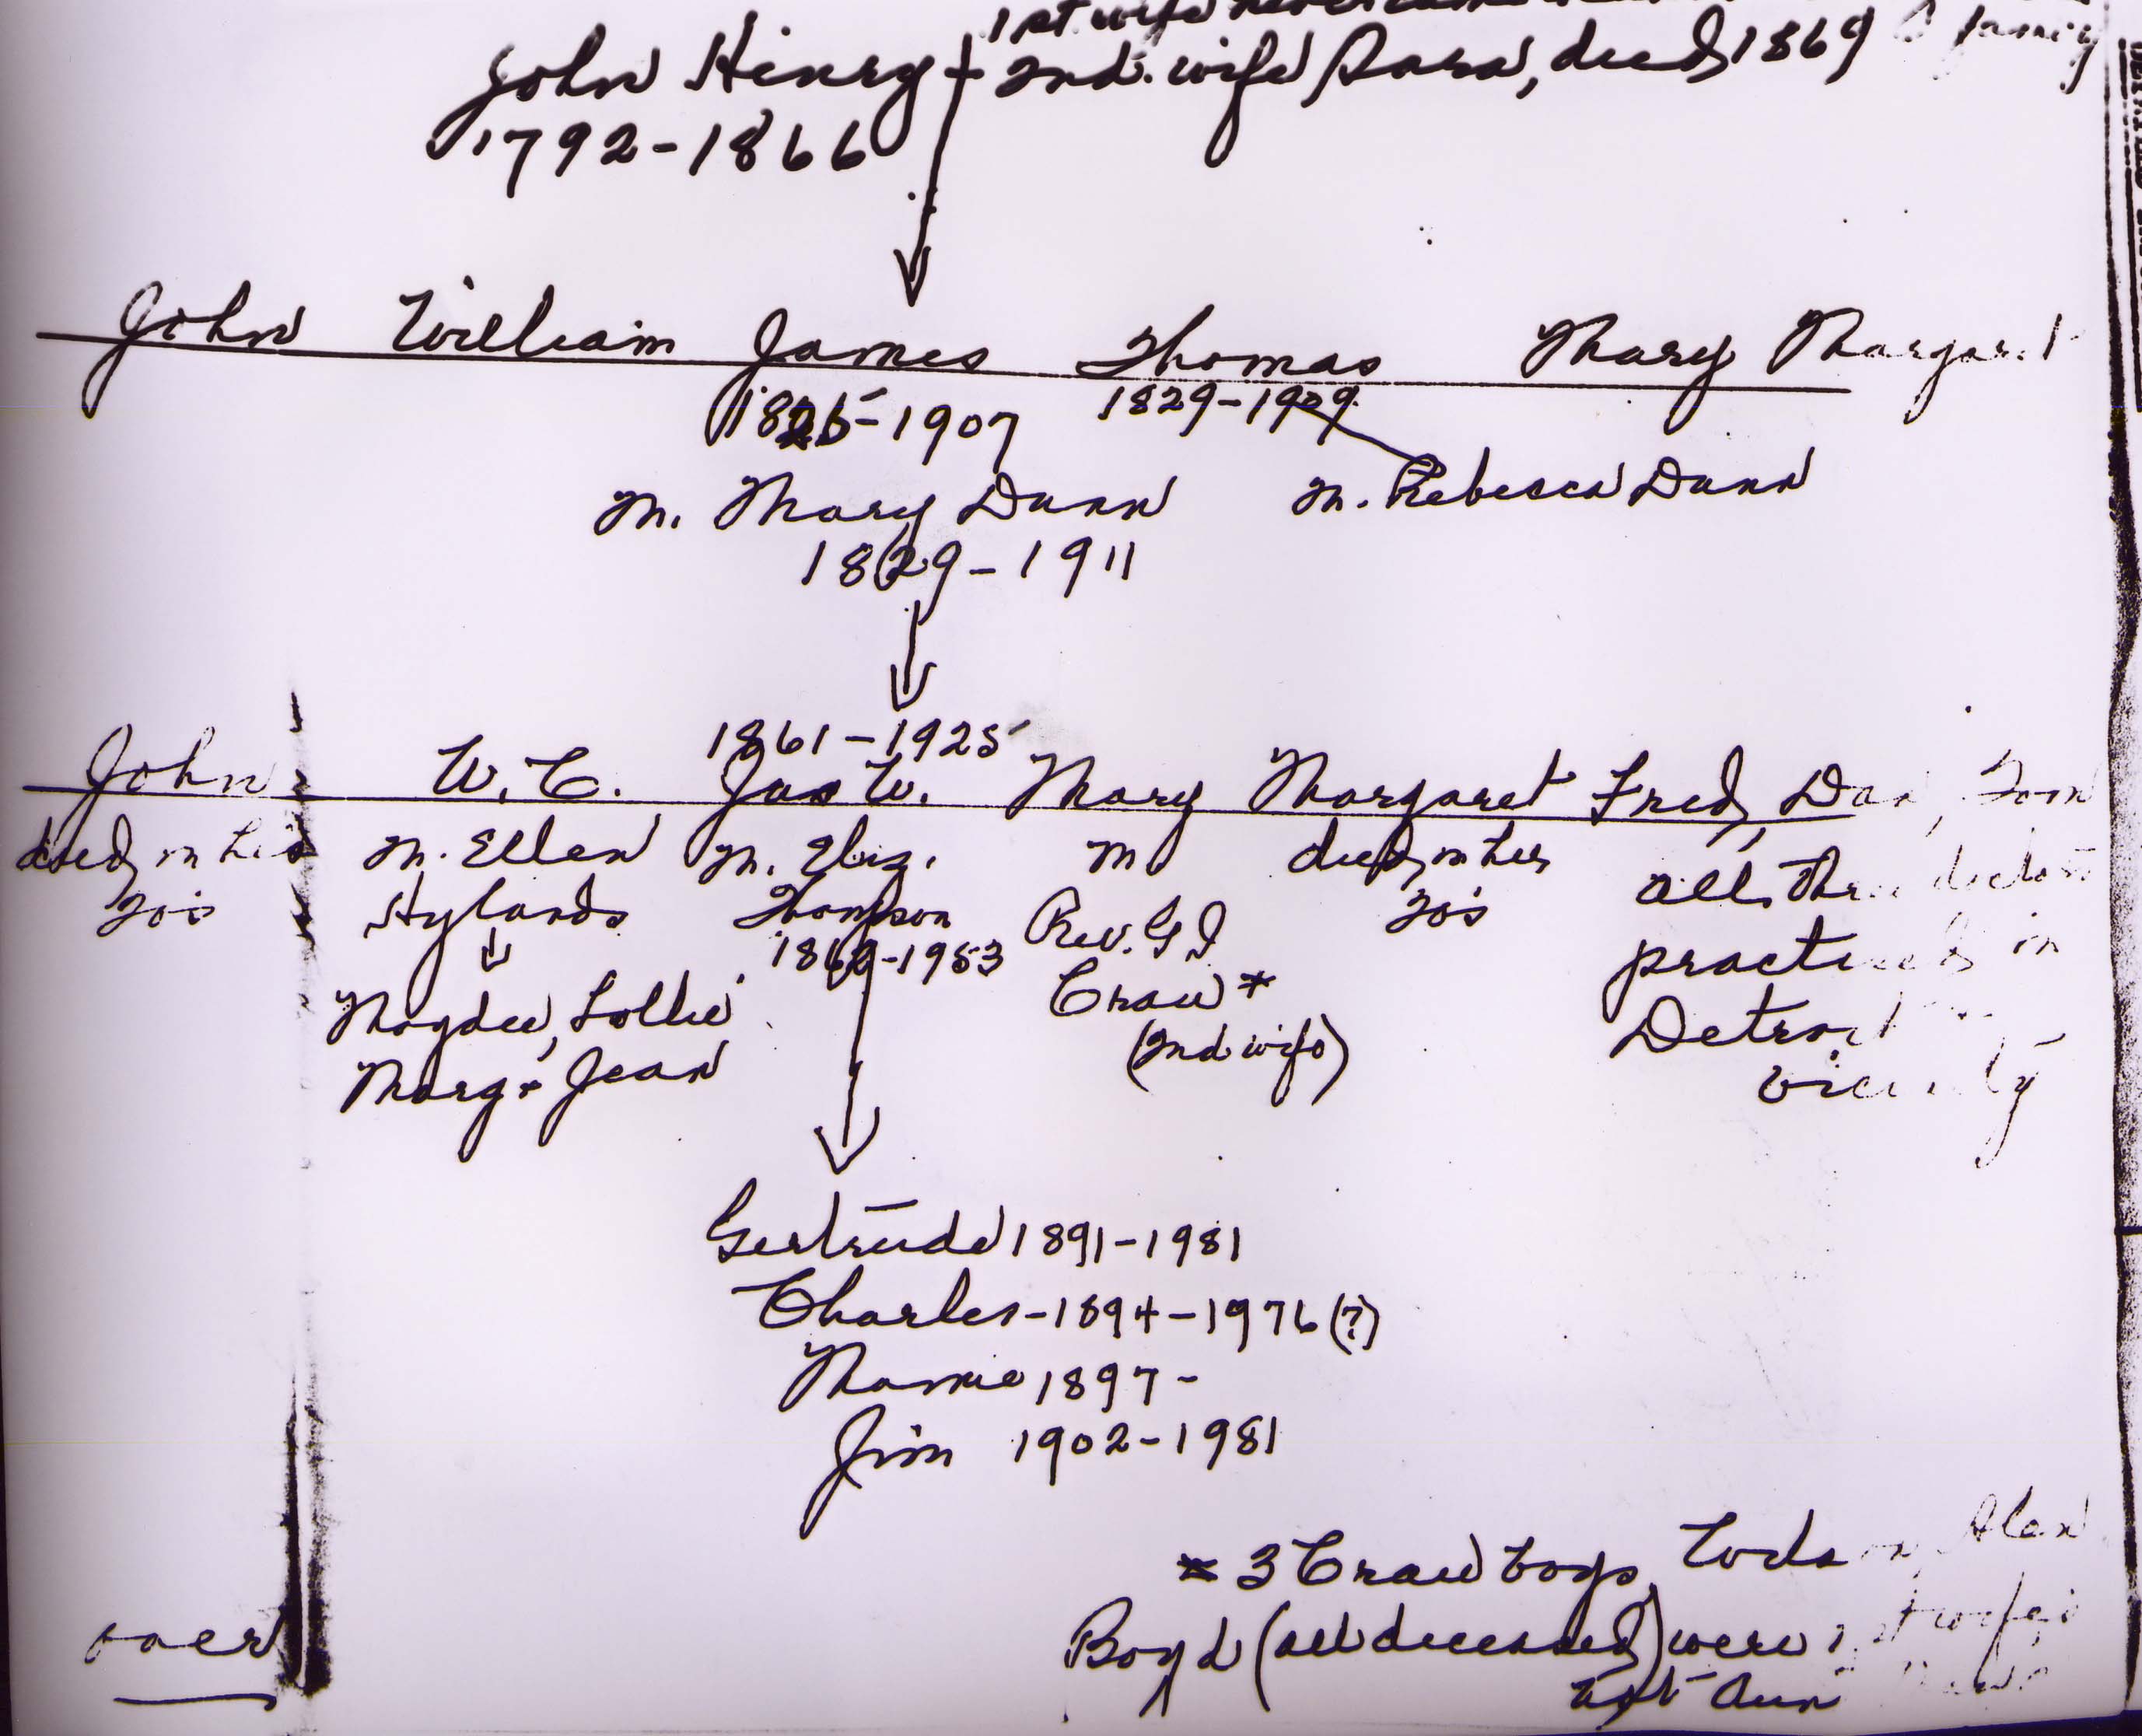 1st wife never
John Henry + 2nd. wife Sara, died 1869 family
1792-1866
John William James Thomas Mary Margaret
1825-1907 1829-1909
m. Mary Dunn m. Rebecca Dunn
1829-1911
1861-1925
John W.C. Jas W. Mary Margaret Fred, Dan, Tom
died in his m. Ellen m. Eliz. m died in her all three doctors
20's Hylands Thompson Rev. G I 20's practiced in
1869-1953 Craw* Detroit
Magdee, Lollie (2nd wife) vicinity
Marg + Jean
Gertrude 1891-1981
Charles-1894-1976(?)
Mamie 1897-
Jim 1902-1981
* 3 Craw boys, Alex
Boyd (all deceased) were 1st wife's
not Aun
over